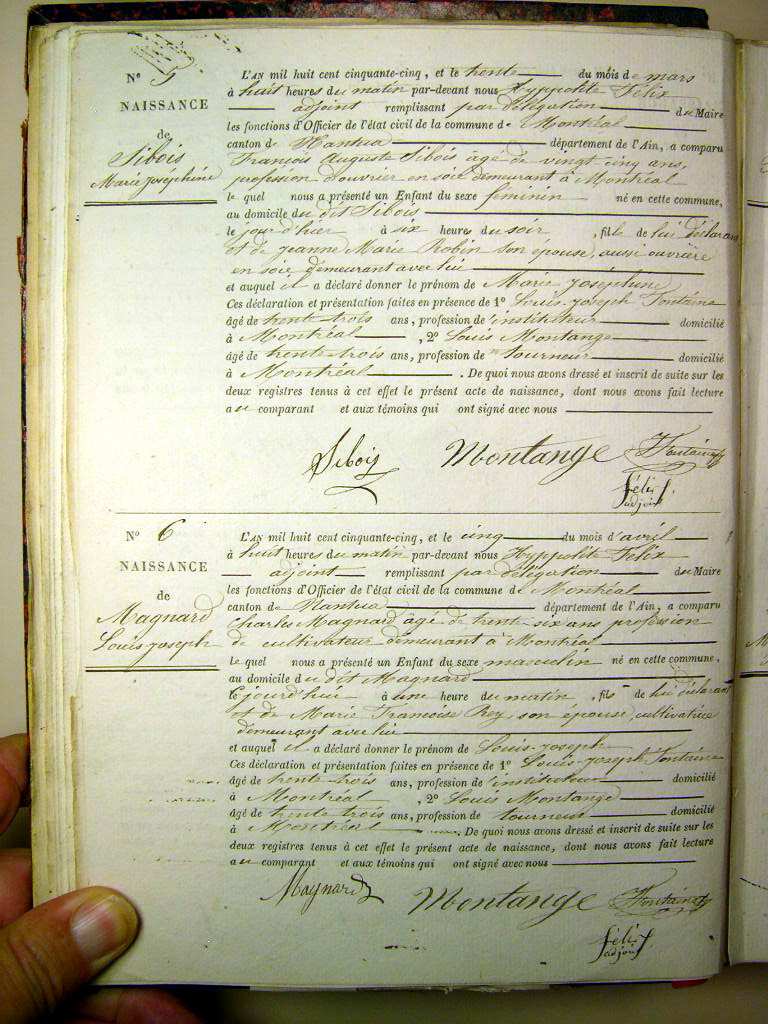 N° 5
NAISSANCE
de
Sibois
Marie Joséphine
L'AN mil huit cent cinquante-cinq, et le trente du mois de mars
à huit heures du matin par-devant nous Hyppolite Félix
adjoint remplissant par délégation du Maire
les fonctions d'Officier de l'état civil de la commune de Montréal
canton de Nantua département de l'Ain, a comparu
François Auguste Sibois âgé de vingt cinq ans,
profession d'ouvrier en soie demeurant à Montréal
le quel nous a présenté un Enfant du sexe féminin né en cette commune,
au domicile du dit Sibois
le jour d'hier à six heures du soir, fille de lui déclarant
et de Jeanne Marie Robin son épouse, aussi ouvrière
en soie demeurant avec lui
et auquel il a déclaré donner le prénom de Marie Joséphine
Ces déclaration et présentation faites en présence de 1° Louis Joseph Fontaine
âgé de trente trois ans, profession d'instituteur domicilié
à Montréal, 2° Louis Montange
âgé de trente-trois ans, profession de tourneur domicilié
à Montréal. De quoi nous avons dressé et inscrit de suite sur les
deux registres tenus à cet effet le présent acte de naissance, dont nous avons fait lecture
au comparant et aux témoins qui ont signé avec nous
Sibois Montange Fontaine
Félix
adjoint
N° 6
NAISSANCE
de
Magnard
Louis Joseph
L'AN mil huit cent cinquante-cinq, et le cinq du mois d'avril
à huit heures du matin par-devant nous Hyppolite Félix
adjoint remplissant par délégation du Maire
les fonctions d'Officier de l'état civil de la commune de Montréal
canton de Nantua département de l'Ain, a comparu
Charles Magnard âgé de trente-six ans profession
de cultivateur demeurant à Montréal
Le quel nous a présenté un Enfant du sexe masculin né en cette commune,
au domicile du dit Magnard
le jourd'hui à une heure du matin, fils de lui déclarant
et de Marie Françoise Rey, son épouse, cultivatrice
demeurant avec lui
et auquel il a déclaré donner le prénom de Louis-Joseph
Ces déclaration et présentation faites en présence de 1° Louis-Joseph Fontaine
âgé de trente trois ans, profession d'instituteur domicilié
à Montréal, 2° Louis Montange
âgé de trente trois ans, profession de tourneur domicilié
à Montréal. De quoi nous avons dressé et inscrit de suite sur les
deux registres tenus à cet effet le présent acte de naissance, dont nous avons fait lecture
au comparant et aux témoins qui ont signé avec nous
Magnard Montange Fontaine
Félix
adjoint